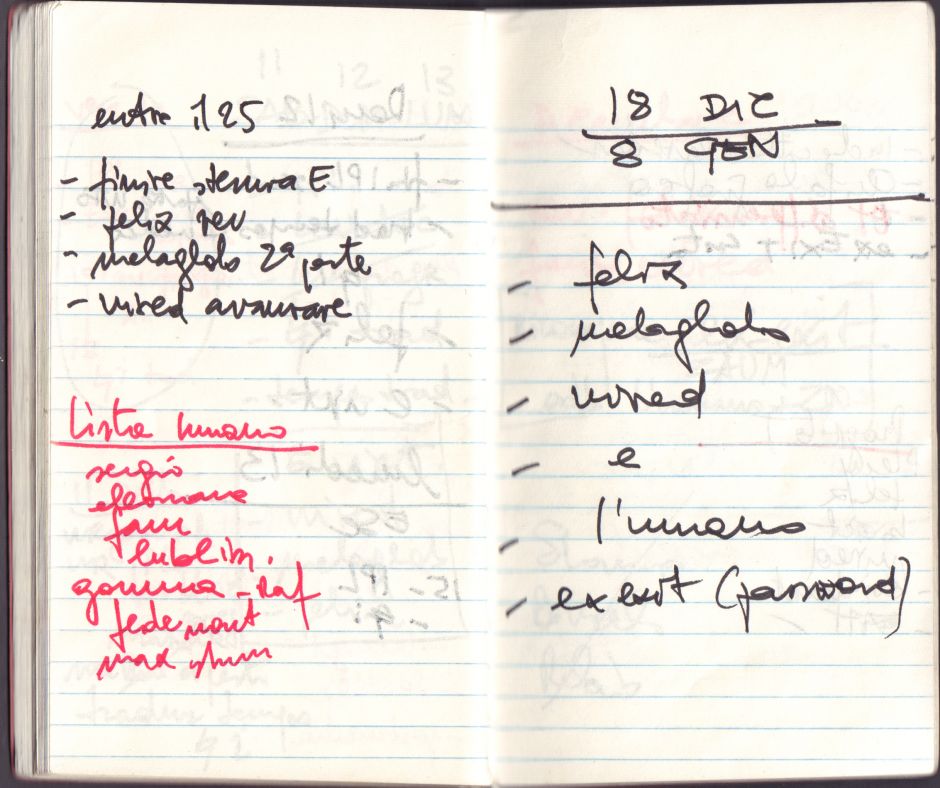 entro il 25
- finire stesura E
- felix rev
- melaglobo 2ª parte
- wired avanzare
lista umano
sergio
jam
lublin.
gomma - raf
federmont
max
18 DIC
8 GEN
- felix
- melaglobo
- wired
- e
- l'umano
- ex exit (password)